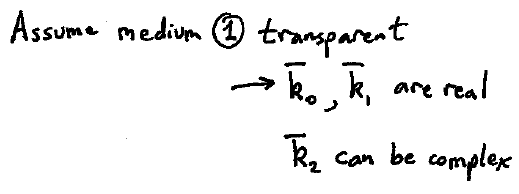 Assume medium ① transparent
→ k̅₀, k̅₁ are real
k̅₂ can be complex